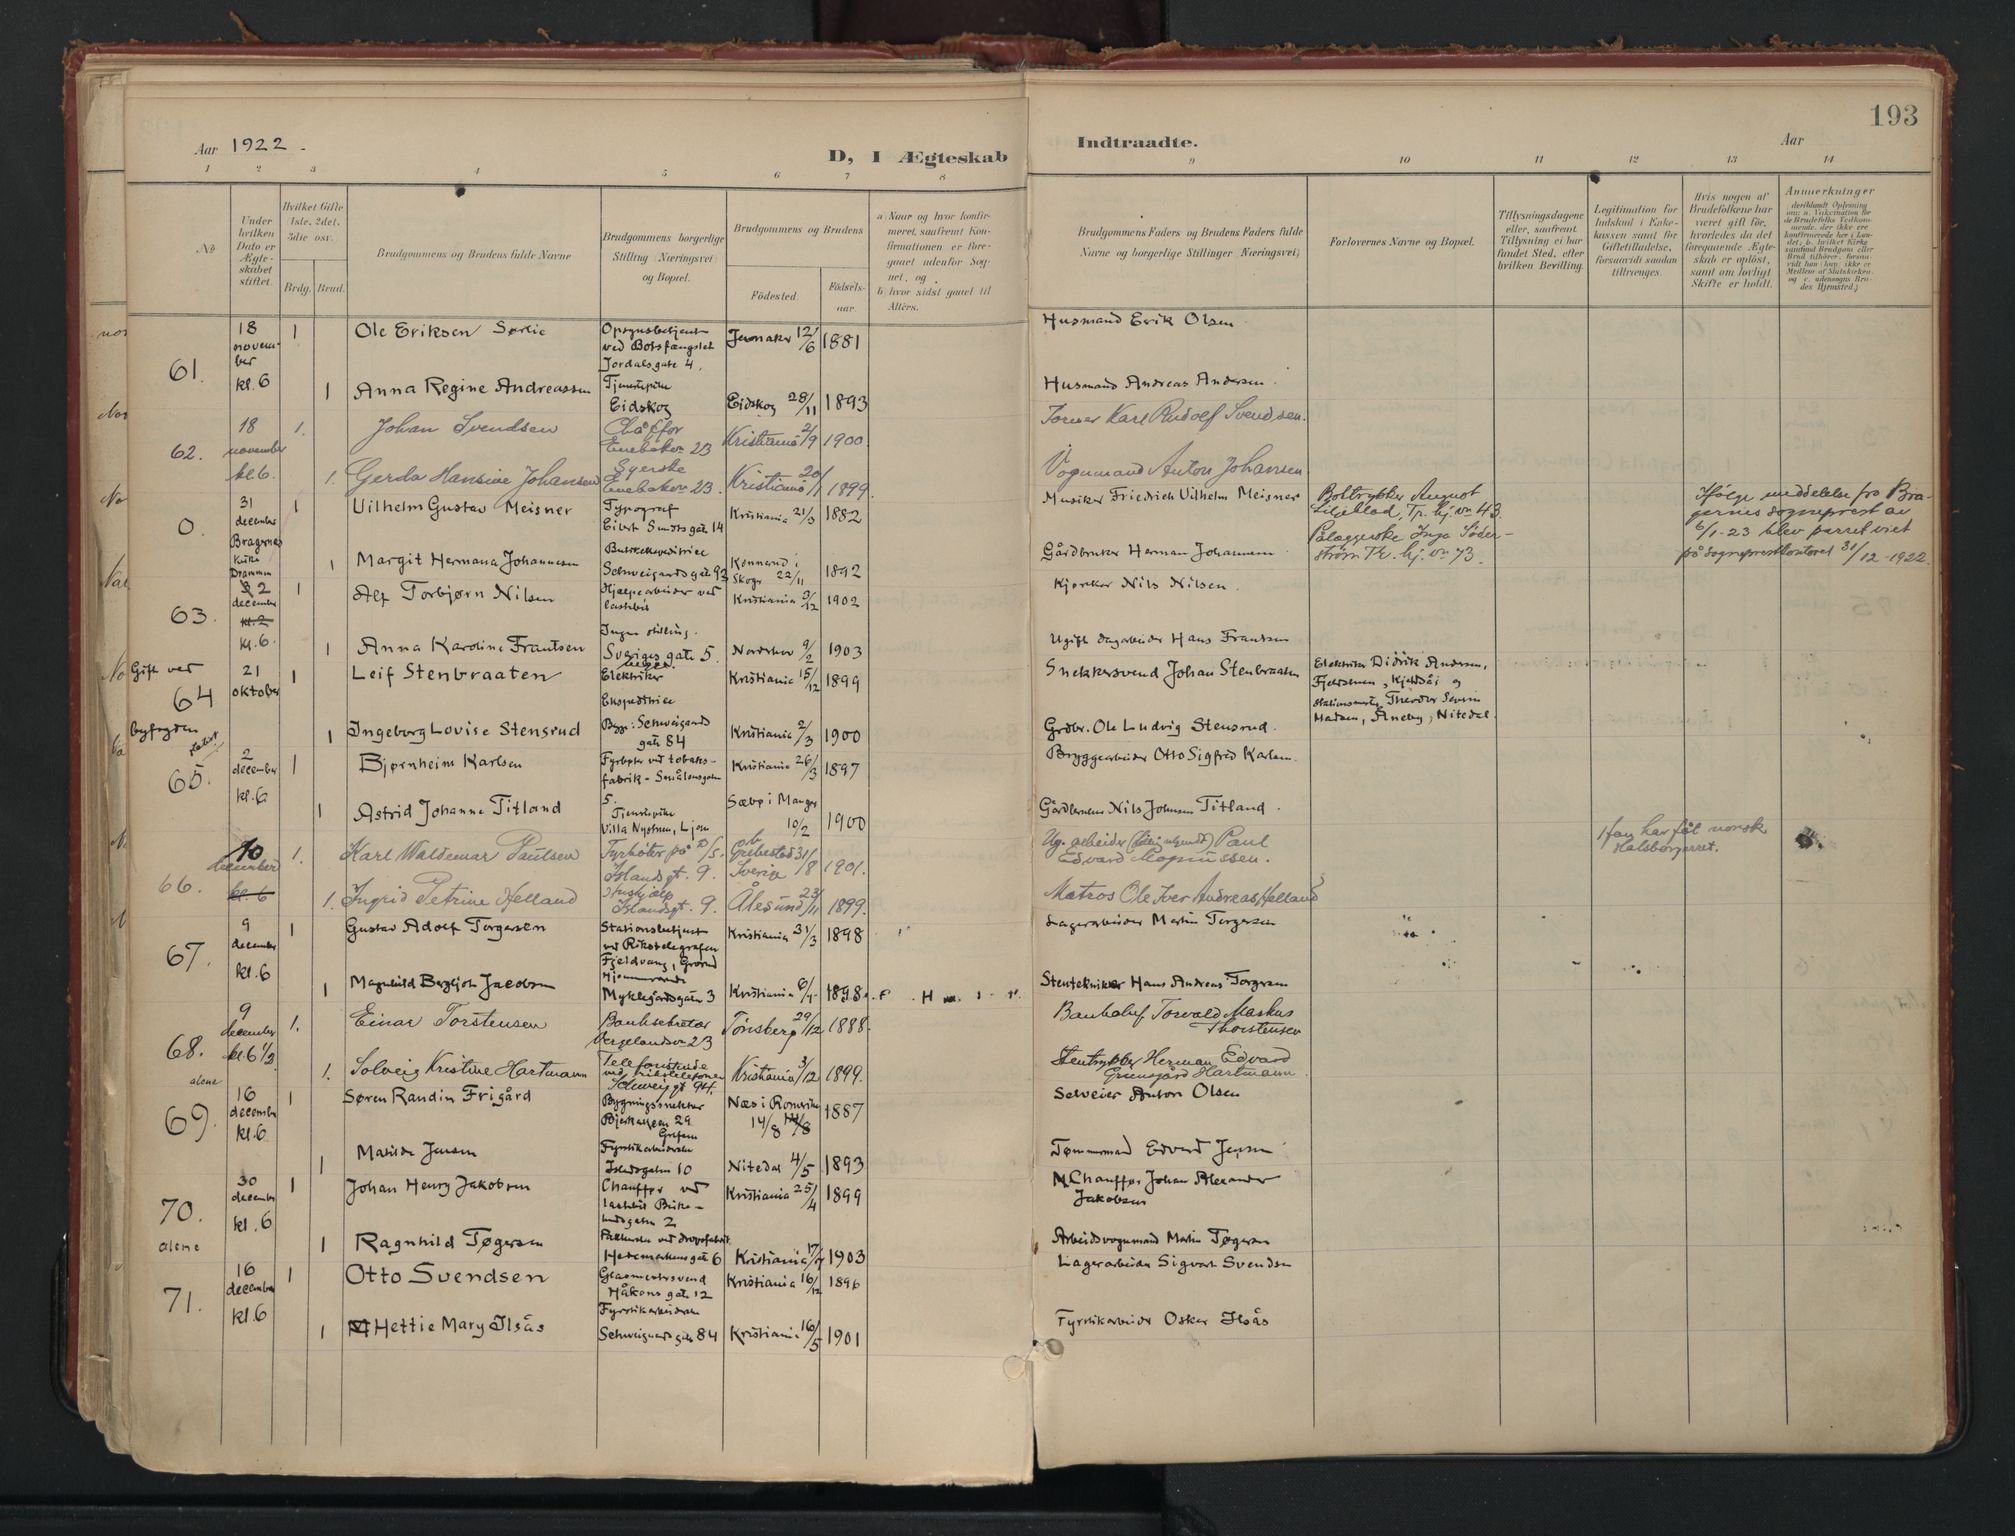 193
Aar 1922.
D, I Ægteskab Indtraadte.
Aar
1 2 3 4 5 6 7 8 9 10 11 12 13 14
No
Under hvilken Dato er Ægteskabet stiftet.
Hvilket Gifte 1ste, 2det, 3die osv.
Brdg. Brud.
Brudgommens og Brudens fulde Navne
Brudgommens borgerlige Stilling (Næringsvei) og Bopæl.
Brudgommens og Brudens
Fødested.
Fødsels-aar.
a) Naar og hvor konfirmeret, saafremt Konfirmationen er foregaaet udenfor Sognet, og
b) hvor sidst gaaet til Alters.
Brudgommens Faders og Brudens Faders fulde Navne og borgerlige Stillinger (Næringsvei)
Forlovernes Navne og Bopæl.
Tillysningsdagene eller, saafremt Tillysning ei har fundet Sted, efter hvilken Bevilling.
Legitimation for Indskud i Enkekassen samt for Giftetilladelse, forsaavidt saadan tiltrænges.
Hvis nogen af Brudefolkene har været gift før, hvorledes da det foregaaende Ægteskab er opløst, samt om lovligt Skifte er holdt.
Anmerkninger
61. 18 november kl. 6
1 Ole Eriksen Sørlie Opsynsbetjent ved Botsfængslet Jordalsgate 4. Jevnaker 12/6 1881 Husmand Erik Olsen
1 Anna Regine Andreassen Tjenestepike Eidskog Eidskog 28/11 1893 Husmand Andreas Andersen.
62. 18 november kl. 6.
1. Johan Svendsen Chåffør Enebakvn 23 Kristiania 2/9 1900. Former Karl Rudolf Svendsen.
1. Gerda Hansine Johansen Syerske Enebakvn 23. Kristiania 20/1 1899. Vognmand Anton Johansen
0. 31 december Bragernes kirke Drammen
1 Vilhelm Gustav Meisner Typograf Eilert Sundts gate 14 Kristiania 21/3 1882 Musiker Friedrich Vilhelm Meisner Boktrykker August Liljeblad, Tr. hj. vn 43. Pålæggerske Inga Söderström Tr. hj. vn 73. Ifølge meddelelse fra Bragernes sogneprest av 6/1-23 blev parret viet på sogneprestkontoret 31/12-1922.
1 Margit Hermana Johannesen Butikekspeditrice Schweigaards gate 92 Konnerud i Skoger 22/11 1892 Gårdbruker Herman Johannesen
63. 2 december kl. 2 kl. 6.
1 Alf Torbjørn Nilsen Hjælpearbeider ved lastebil Kristiania 3/12 1902 Kjørekar Nils Nilsen.
1 Anna Karoline Frantsen Ingen stilling. Sveriges gate 5. Norderhov 9/2 1903 Ugift dagarbeider Hans Frantsen
Gift ved byfogden
64 21 oktober
1 Leif Stenbraaten Elektriker Kristiania 15/12 1899 Snekkersvend Johan Stenbraaten Elektriker Didrik Andersen, Fjeldstuen, Kjelsås og stationsmester Theodor Severin Madsen, Aneby, Nitedal.
1 Ingeborg Lovise Stensrud Ekspeditrice Begge: Schweigaards gate 84 Kristiania 2/3 1900 Grdbr. Ole Ludvig Stensrud.
65. 2 december kl. 6
1 Bjørnheim Karlsen Fyrbøter ved tobaksfabrik - Smålensgaten 5. Kristiania 26/3 1897 Bryggearbeider Otto Sigfred Karlsen.
1 Astrid Johanne Titland Tjenestepike Villa Nystuen, Ljan Sæbø i Manger 10/2 1900 Gårdbruker Nils Johnsen Titland.
66. 10 december kl. 6
1. Karl Waldemar Paulsen Fyrbøter på D/S. Islandsgt. 9. Grebbestad Sverige 31/8 1901. Ug. arbeider Paul Edvard Magnussen. Han har fåt norsk statsborgerret.
1. Ingrid Petrine Helland Hushjelp Islandsgt. 9. Ålesund 23/11 1899. Matros Ole Iver Andreas Helland
67. 9 december kl. 6
1 Gustav Adolf Torgersen Stationsbetjent ved Rikstelegrafen Fjeldvang, Grorud Kristiania 31/3 1898 Lagerarbeider Martin Torgersen
1 Magnhild Bergljot Jacobsen Hjemmeværende Myklegårdsgaten 3 Kristiania 6/1 1898. Stentekniker Hans Andreas Torgersen
68. 9 december kl. 6 1/2 alene
1. Einar Torstensen Banksekretær Vergelandsvn 23 Tønsberg 29/12 1888. Bankchef Torvald Markus Thorstensen
1. Solveig Kristine Hartmann Telefonistinde ved rikstelefonen Schweigt. 94. Kristiania 3/12 1899. Stentrykker Herman Edvard Hartmann.
69. 16 december kl. 6
1 Søren Randin Frigård Bygningssnekker Bjerkealleen 29 Grefsen Næs i Romerike 14/8 1887 Selveier Anton Olsen
1 Matilde Jensen Fyrstikarbeiderske Islandsgaten 10 Nitedal 4/5 1893 Tømmermand Edvard Jensen
70. alene 30 december kl. 6
1 Johan Henry Jakobsen Chauffør ved lastebil Birkelundsgaten 2 Kristiania 25/4 1899 Chauffør Johan Alexander Jakobsen
1 Ragnhild Tøgersen Pakkerske ved dropsfabrik Hedemarkens gate 6 Kristiania 17/7 1903 Arbeidsvognmand Martin Tøgersen
71. 16 december kl. 6
1 Otto Svendsen Glasmestersvend Håkons gate 12 Kristiania 16/12 1896 Lagerarbeider Sigvart Svendsen
1 Hettie Mary Ilsås Fyrstikarbeiderske Schweigaards gate 84 Kristiania 16/5 1901 Fyrstikarbeider Oskar Ilsås